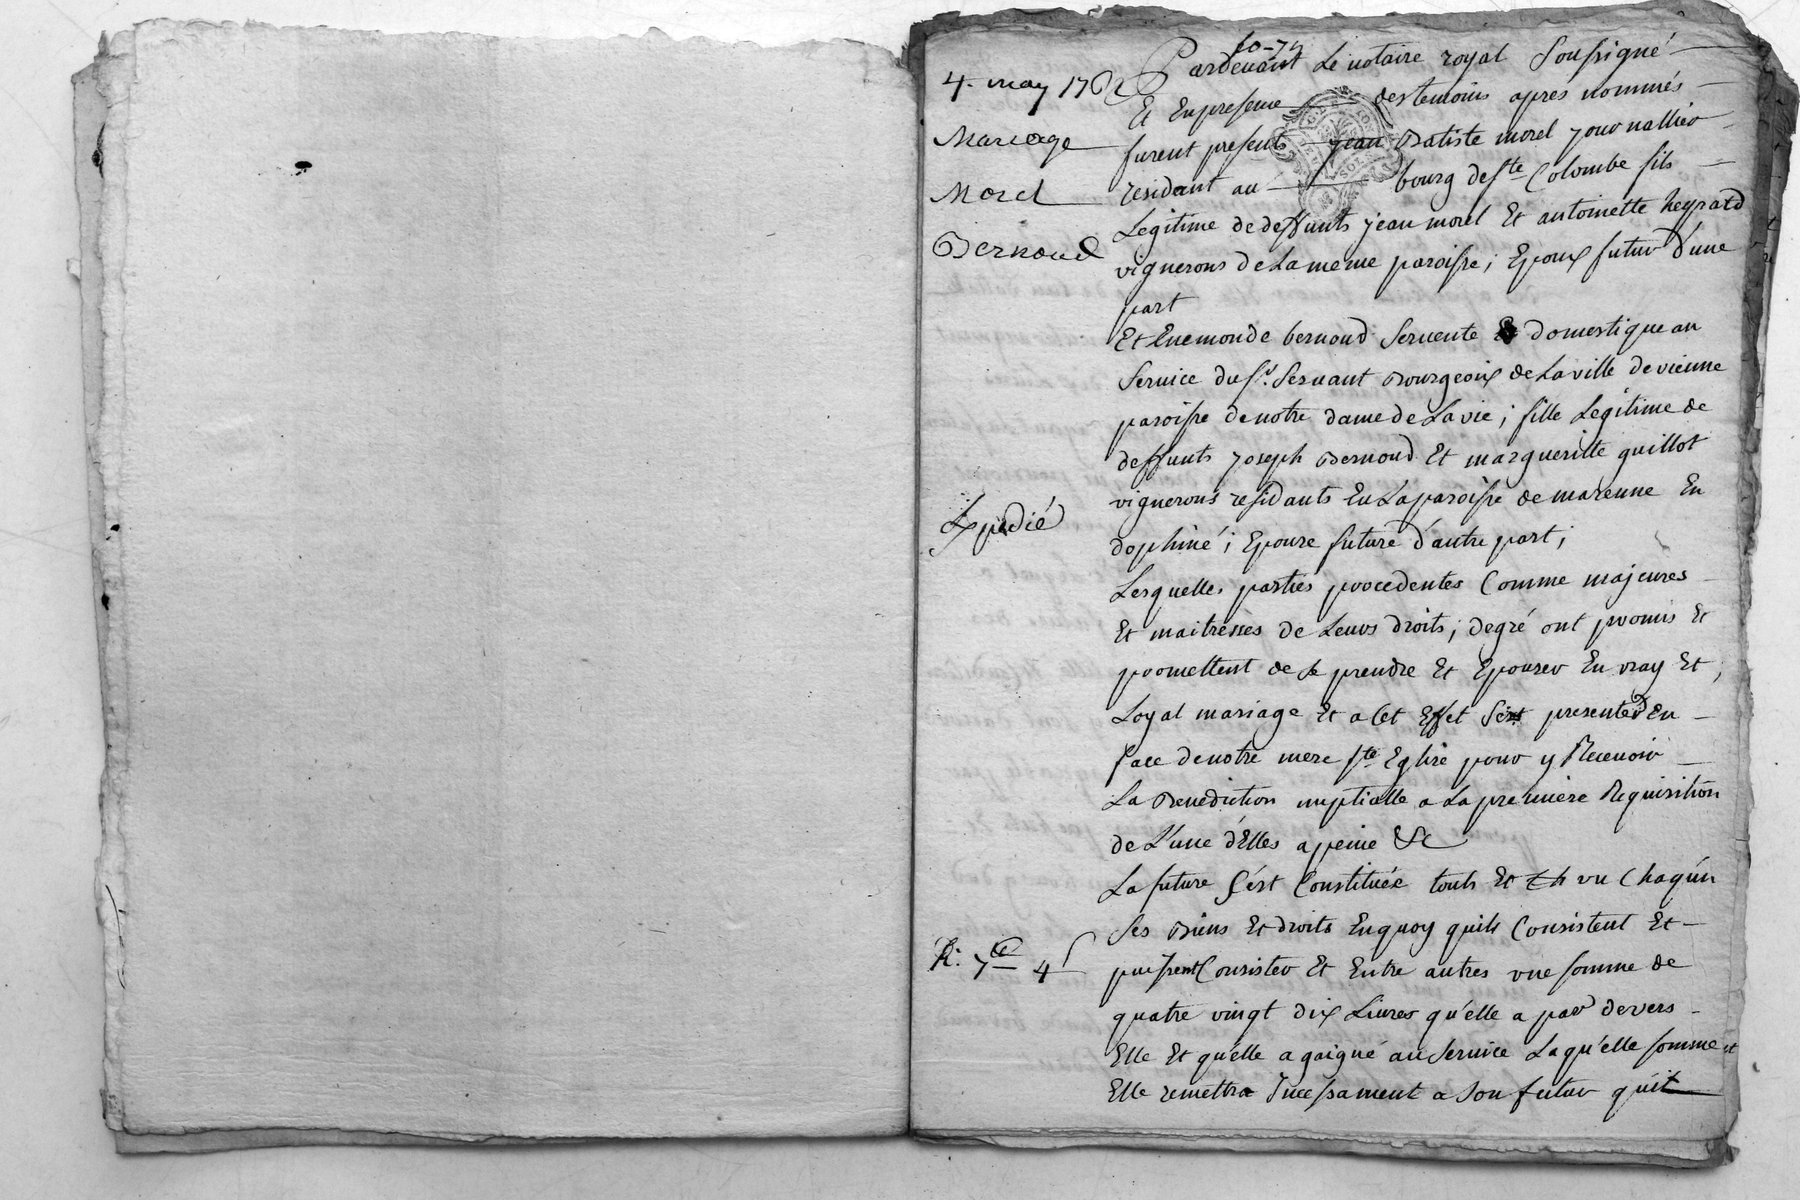 4. may 1762
Mariage
Morel
Bernoud
Expedié
R. 7 4
Pardevant Le notaire royal Soussigné
Et En presence des temoins apres nommés
furent presents jean Batiste morel journallier
residant au bourg de ste Colombe fils
Legitime de deffunts jean morel Et antoinette heyrard
vignerons de La meme paroisse; Epoux futur d'une
part
Et Enemonde bernoud Servente Et domestique au
Service du sr. Servant Bourgeoix de La ville de vienne
paroisse de notre dame de La vie; fille Legitime de
deffunts joseph Bernoud Et margueritte guillot
vignerons residants En La paroisse de marenne En
dophiné; Epouze future d'autre part;
Lesquelles parties procedentes Comme majeures
Et maitresses de Leurs droits; degré ont promis Et
promettent de se prendre Et Epouser En vray Et
Loyal mariage Et a Cet Effet presenter En
face de notre mere ste Eglise pour y Recevoir
La Benediction nuptialle a La premiere Requisition
de L'une d'Elles a peine &c
La future s'est Constituée touts Et vn Chaqún
Ses Biens Et droits En quoy quils Consistent Et
puissent Consister Et Entre autres vne somme de
quatre vingt dix Livres qu'elle a par devers
Elle Et qu'elle a gaigné au Service Laqu'elle somme
Elle remettra Incessament a Son futur quit